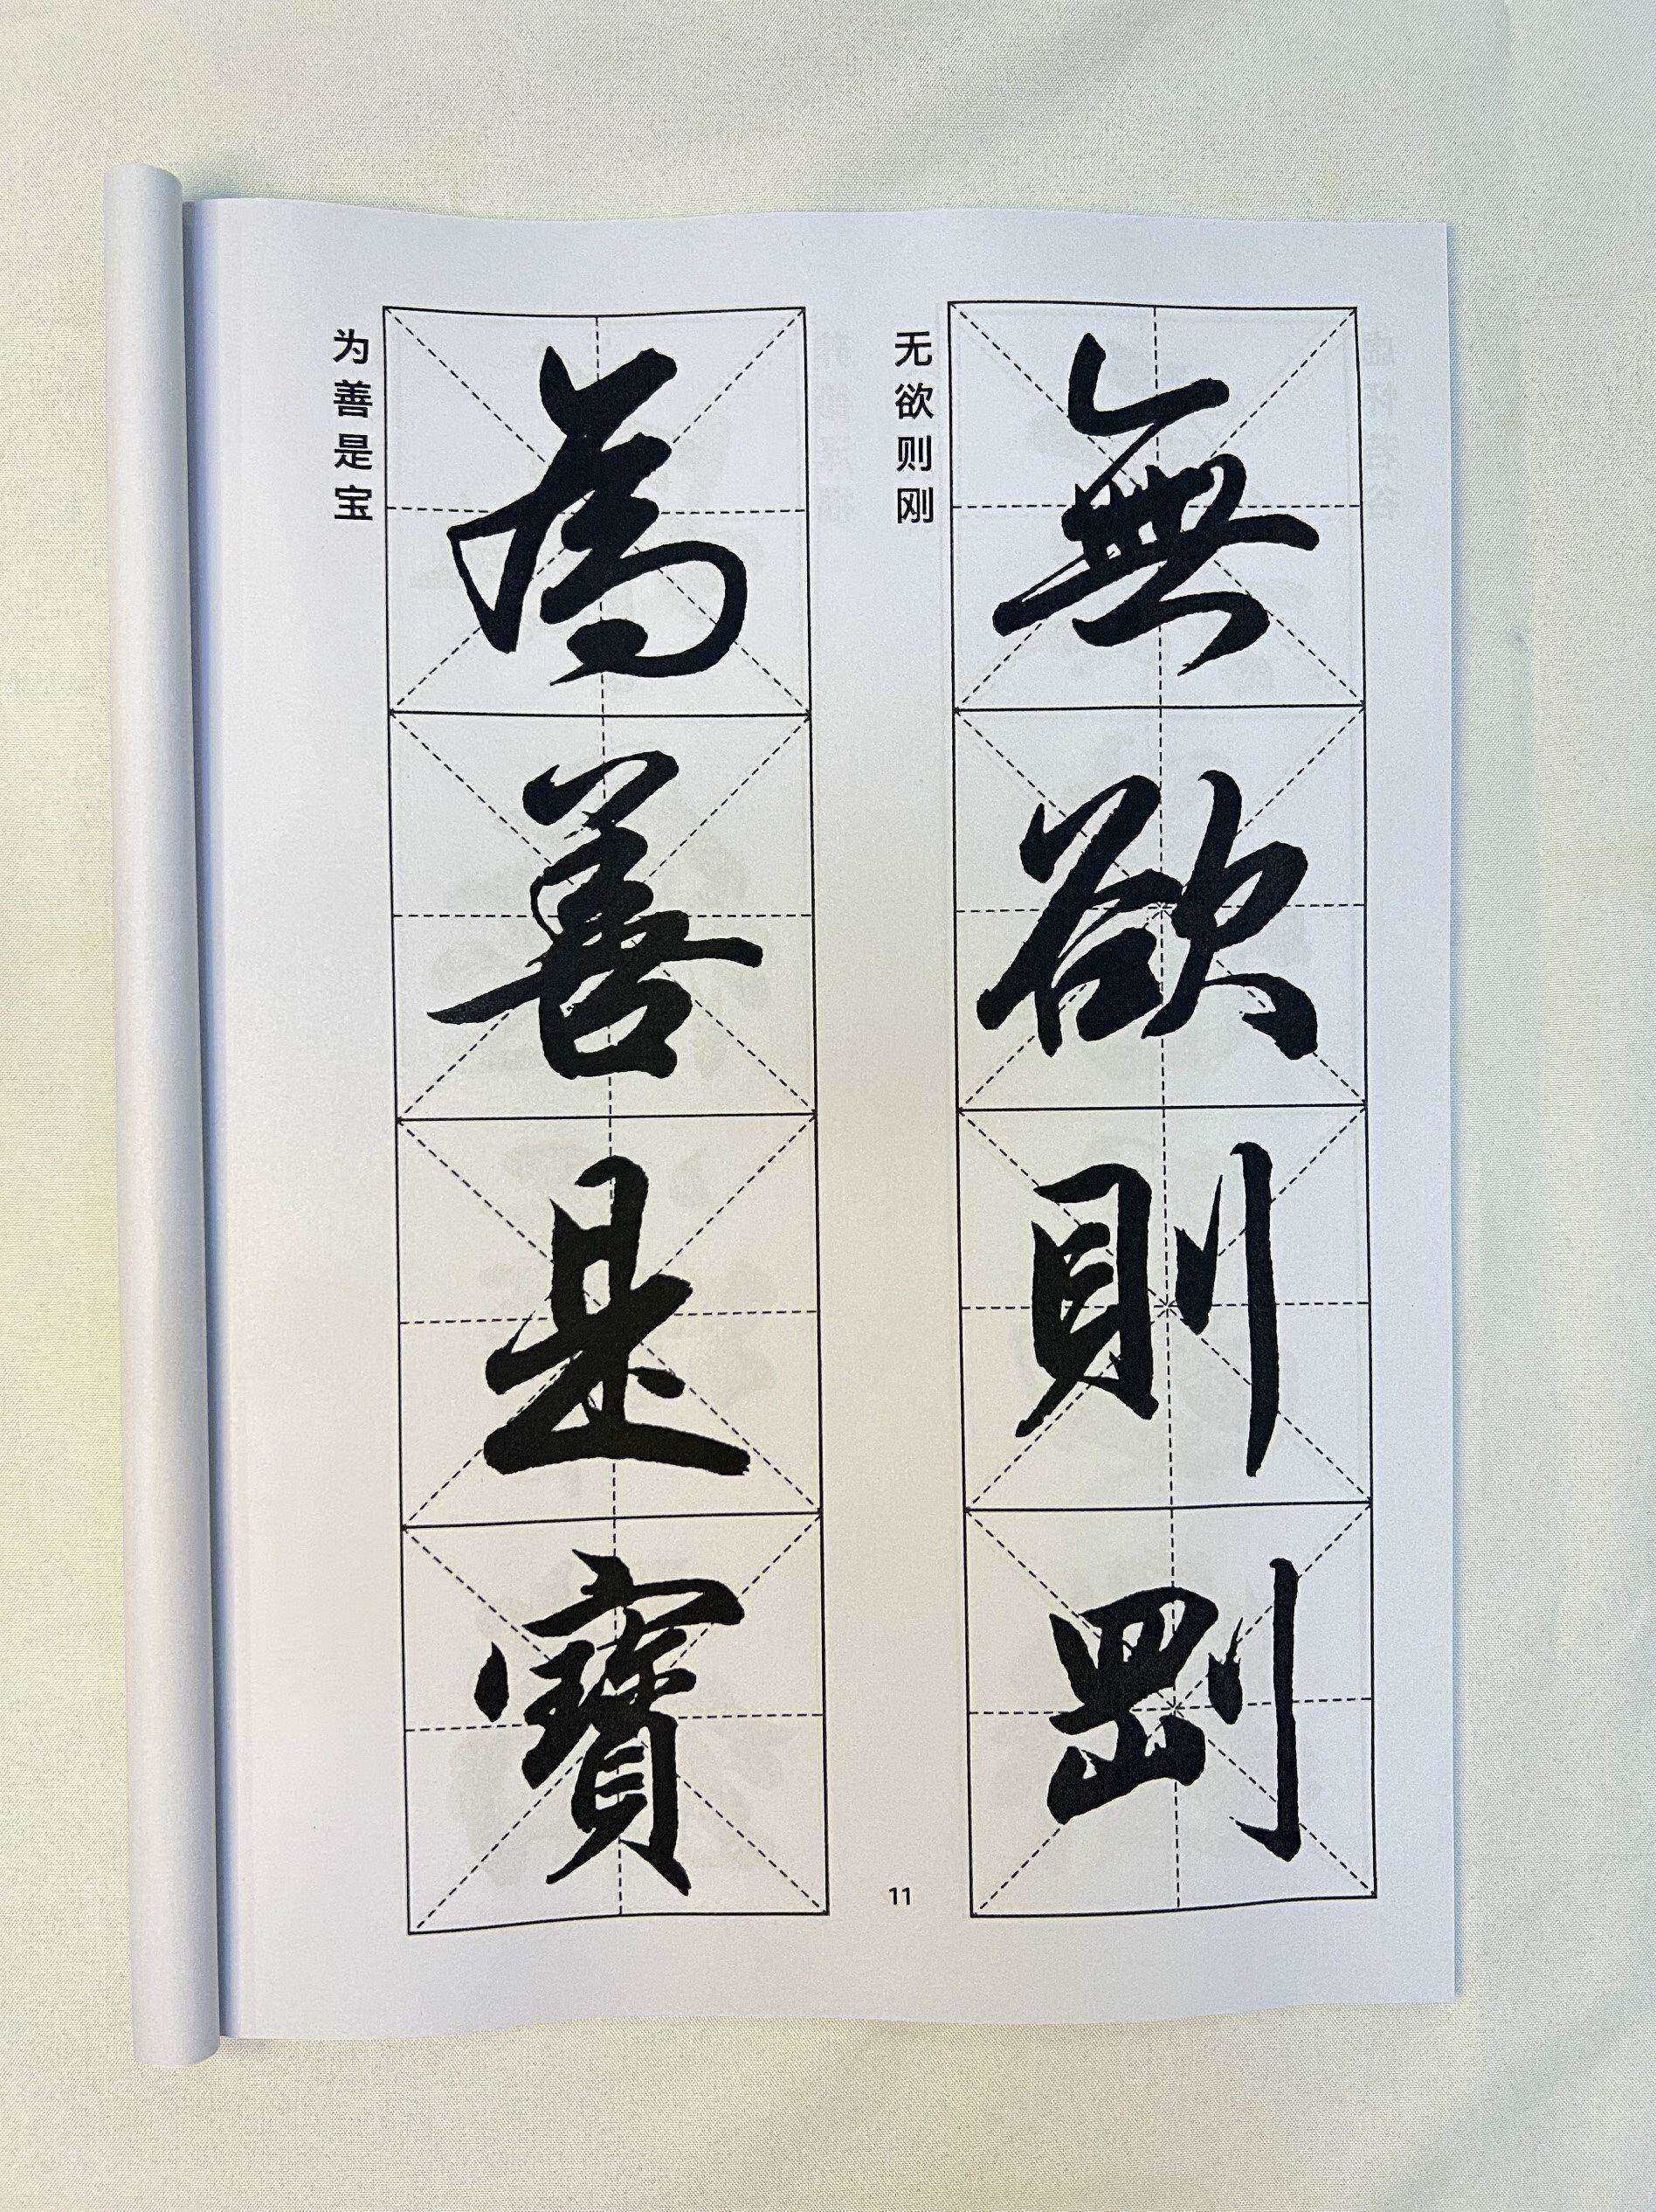 無欲則剛
无欲则刚
為善是寶
为善是宝
11